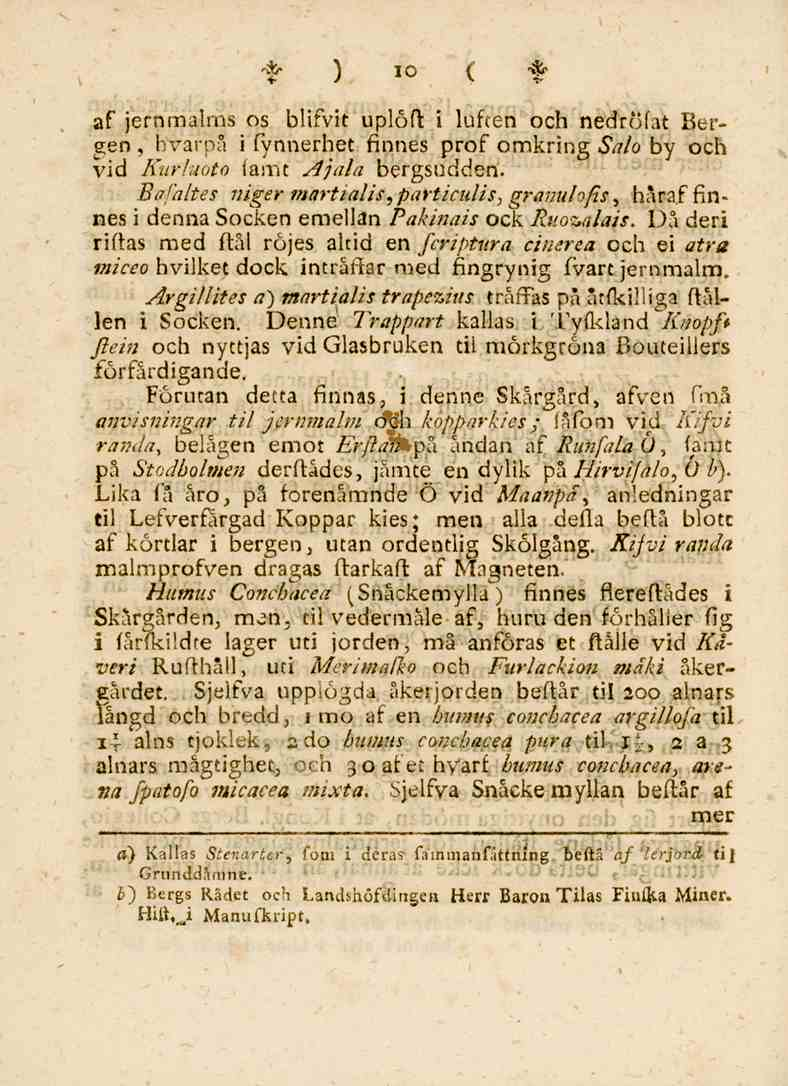 ) 10 (
af jernmalms os blifvit uplöſt i luften och nedröſat Ber-
gen, hvarpå i ſynnerhet finnes prof omkring Salo by och
vid Kurluoto ſamt Ajala bergsudden.
Baſaltes niger martialis, particulis, granuloſis, håraf fin-
nes i denna Socken emellan Pakinais ock Ruozalais. Då deri
riſtas med ſtål röjes altid en ſcriptura cinerea och ei atra
miceo hvilket dock intråffar med fingrynig ſvart jernmalm.
Argillites a) martialis trapezius tråffas på åtſkilliga ſtål-
len i Socken. Denne Trappart kallas i Tyſkland Knopf-
ſtein och nyttjas vid Glasbruken til mörkgröna Bouteillers
förfårdigande.
Förutan detta finnas, i denne Skårgård, afven ſmå
anvisningar til jernmalm och kopparkies; ſåſom vid Kifvi
randa, belågen emot Erſtan på åndan af Runſala Ö, ſamt
på Stodholmen derſtådes, jåmte en dylik på Hirviſalo, Ö b).
Lika ſå åro, på förenåmnde Ö vid Maanpå, anledningar
til Lefverfårgad Koppar kies; men alla deſſa beſtå blott
af körtlar i bergen, utan ordentlig Skölgång. Kifvi randa
malmprofven dragas ſtarkaſt af Magneten.
Humus Conchacea (Snåckemylla) finnes flereſtådes i
Skårgården, men, til vedermåle af, huru den förhåller ſig
i ſårſkildte lager uti jorden, må anföras et ſtålle vid Kå-
veri Ruſthåll, uti Merimaſko och Furlackion måki åker-
gårdet. Sjelfva upplögda åkerjorden beſtår til 200 alnars
långd och bredd, 1 mo af en humus conchacea argilloſa til
alns tjoklek, 2 do humus conchacea pura til 2 a 3
alnars mågtighet, och 3 o af et hvarf humus conchacea, are-
na ſpatoſo micacea mixta. Sjelfva Snåcke myllan beſtår af
mer
a) Kallas Stenarter, ſom i deras ſammanſåttning beſtå af lerjord til
Grunddåmne.
b) Bergs Rådet och Landshöfdingen Herr Baron Tilas Finſka Miner.
Hiſt, i Manuſkript.